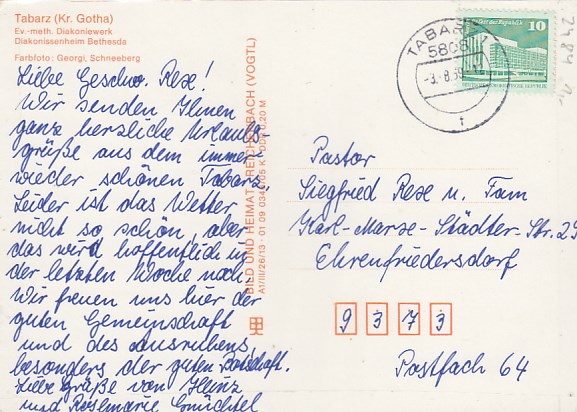 Tabarz (Kr. Gotha)
Ev.-meth. Diakoniewerk
Diakonissenheim Bethesda
Farbfoto: Georgi, Schneeberg
Liebe Geschw. Rexe!
Wir senden Ihnen
ganz herzliche Urlaubs-
grüße aus dem immer
wieder schönen Tabarz.
Leider ist das Wetter
nicht so schön, aber
das wird hoffentlich in
der letzten Woche noch.
Wir freuen uns hier der
guten Gemeinschaft
und des Ausruhens,
besonders der guten Botschaft.
Liebe Grüße von Heinz
und Rosemarie
BILD UND HEIMAT REICHENBACH (VOGTL)
A1/III/26/13 · 01 09 0340/05 K
TABARZ
5808
10
DEUTSCHE DEMOKRATISCHE REPUBLIK
Pastor
Siegfried Rexe u. Fam
Karl-Marx-Städter-Str. 29
Ehrenfriedersdorf
9 3 7 3
Postfach 64